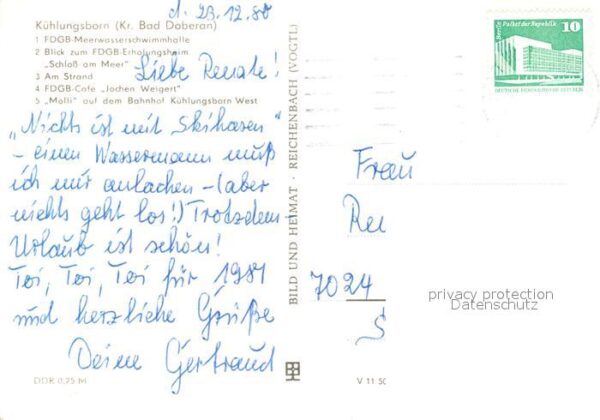 d. 23.12.80
Kühlungsborn (Kr. Bad Doberan)
1 FDGB-Meerwasserschwimmhalle
2 Blick zum FDGB-Erholungsheim
„Schloß am Meer"
3 Am Strand
4 FDGB-Café „Jochen Weigert"
5 „Molli" auf dem Bahnhof Kühlungsborn West
Liebe Renate!
„Nichts ist mit Skihasen"
- einen Wassermann muß
ich mir anlachen - (aber
nichts geht los!) Trotzdem
Urlaub ist schön!
Toi, Toi, Toi für 1981
und herzliche Grüße
Deine Gertraud
DDR 0,25 M
BILD UND HEIMAT · REICHENBACH (VOGTL)
V 11 50
Berlin Palast der Republik
10
DEUTSCHE DEMOKRATISCHE REPUBLIK
Frau
Ren
7024
S
privacy protection
Datenschutz